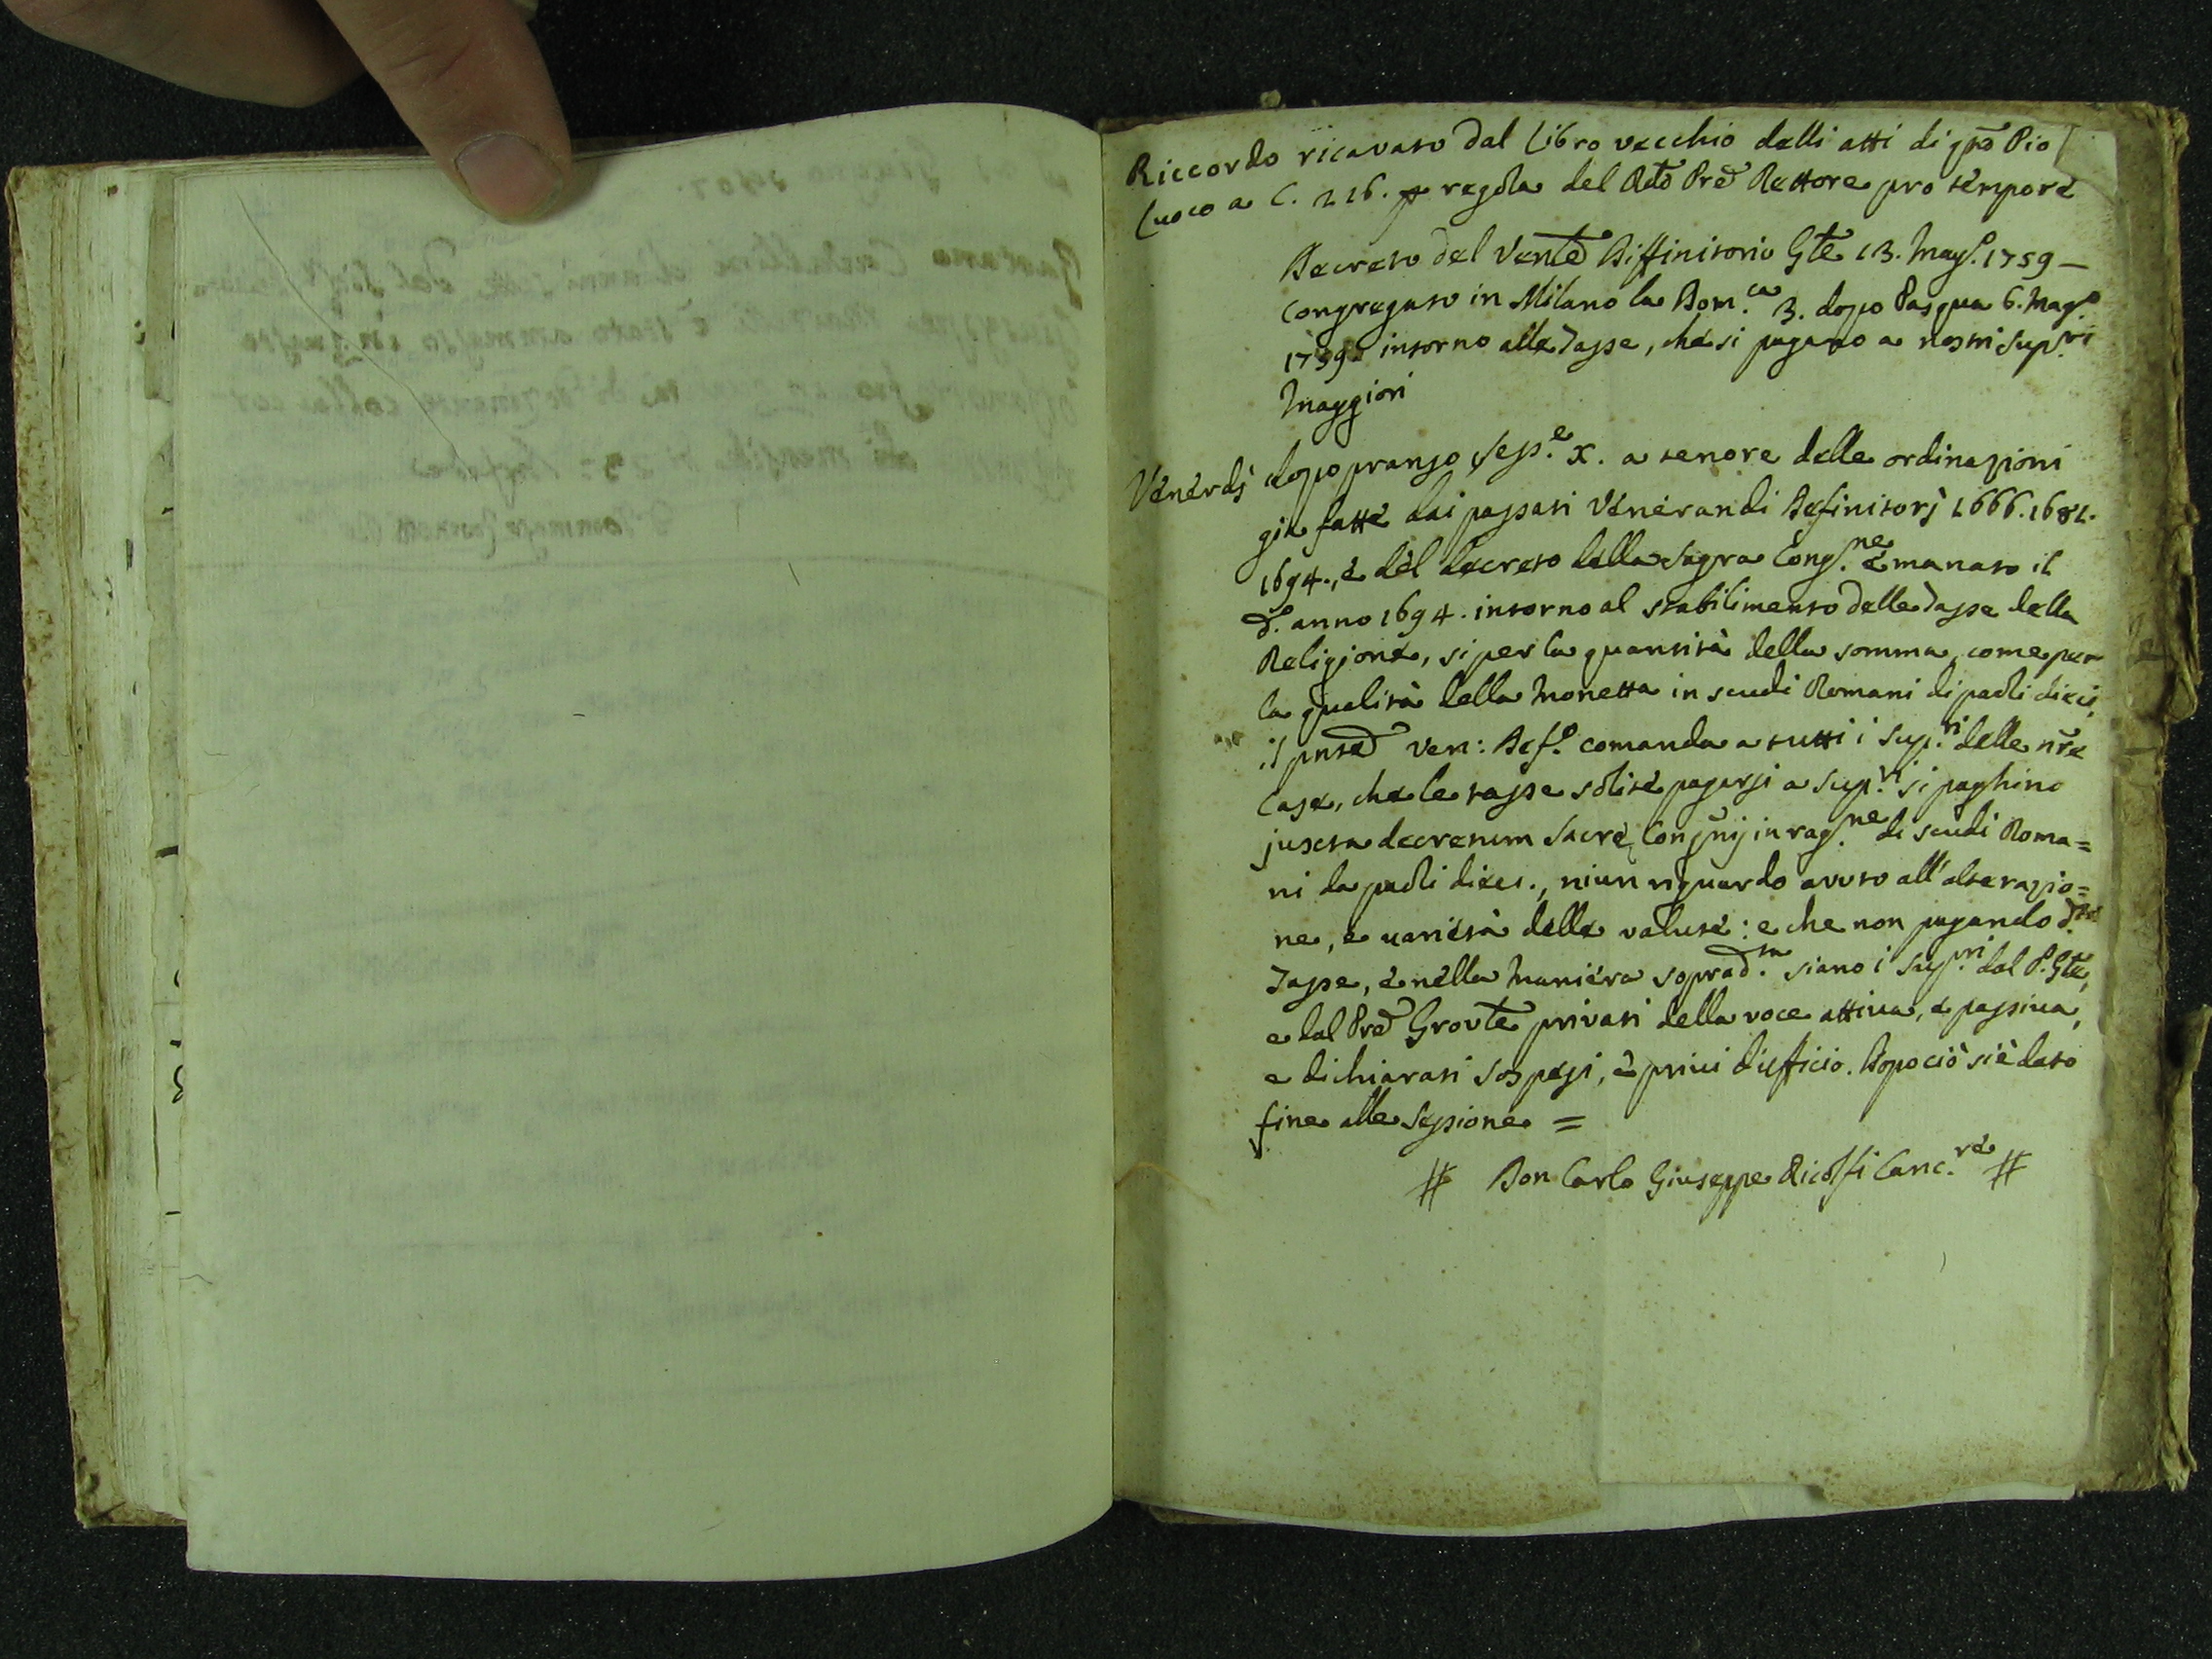 Riccordo ricavato dal Libro vecchio delli atti di qto Pio
Luoco a C. 216. p regola del Rdo Pre Rettore pro tempore
Decreto del Vente Diffinitorio Gte 13. Mag.o 1759 —
Congregato in Milano la Dom.ca 3. dopo Pasqua 6. Mag.o
1759. intorno alle Tasse, che si pagano a nostri Sup.ri
Maggiori
Venerdì dopo pranzo Sess.e X. a tenore delle ordinazioni
già fatte dai passati Venerandi Definitorj 1666. 1681.
1694., e del decreto della Sagra Cong.ne emanato il
d.o anno 1694. intorno al stabilimento delle Tasse della
Religione, si per la quantità della somma, come per
la qualità della Monetta in scudi Romani di paoli dieci,
il pnte Ven: Def.o comanda a tutti i Sup.ri delle nre
Case, che le tasse solite pagarsi a Sup.ri si paghino
juxta decretum Sacre Congnij in rag.ne di scudi Roma=
ni da paoli dieci., niun riguardo avuto all'alterazio=
ne, e varietà delle valute: e che non pagando d.te
Tasse, e nella Maniera soprad.ta siano i Sup.ri dal P. Gte,
e dal Pre Provte privati della voce attiva, e passiva,
e dichiarati Sospesi, e privi d'ufficio. Dopo ciò si è dato
fine alla Sessione =
# Don Carlo Giuseppe Ricolfi Canc.re #